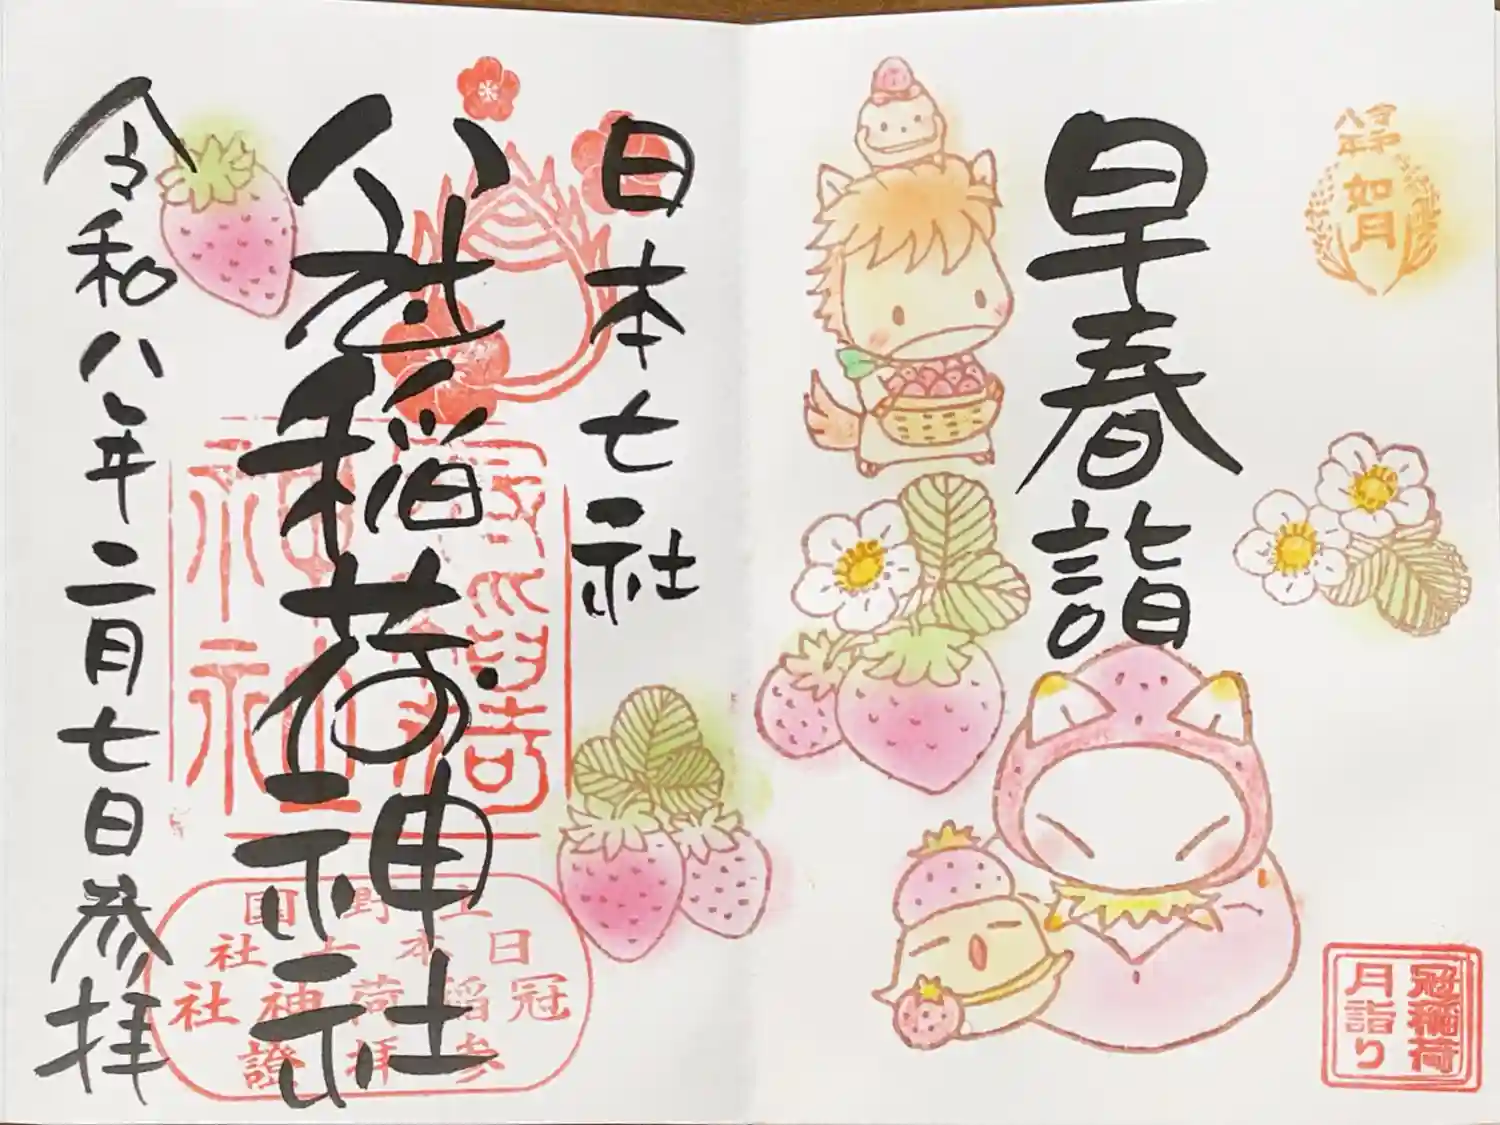 令和
八年
如月
早春詣
冠稲荷
月詣り
日本七社
冠稲荷神社
令和八年二月七日参拝
上野国
日本七社
冠稲荷神社
参拝證